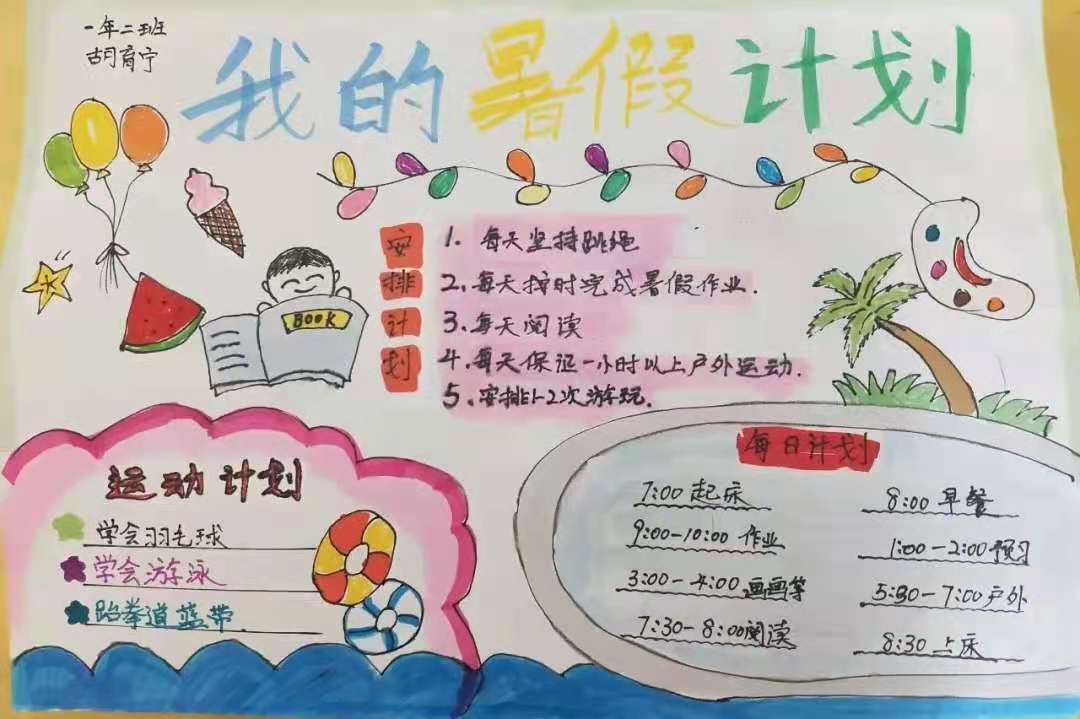 一年二班
胡育宁
我的暑假计划
BOOK
安排计划
1. 每天坚持跳绳
2. 每天按时完成暑假作业.
3. 每天阅读
4. 每天保证一小时以上户外运动.
5. 安排1-2次游玩.
运动计划
学会羽毛球
学会游泳
跆拳道蓝带
每日计划
7:00 起床
8:00 早餐
9:00-10:00 作业
1:00-2:00 预习
3:00-4:00 画画等
5:30-7:00 户外
7:30-8:00 阅读
8:30 上床